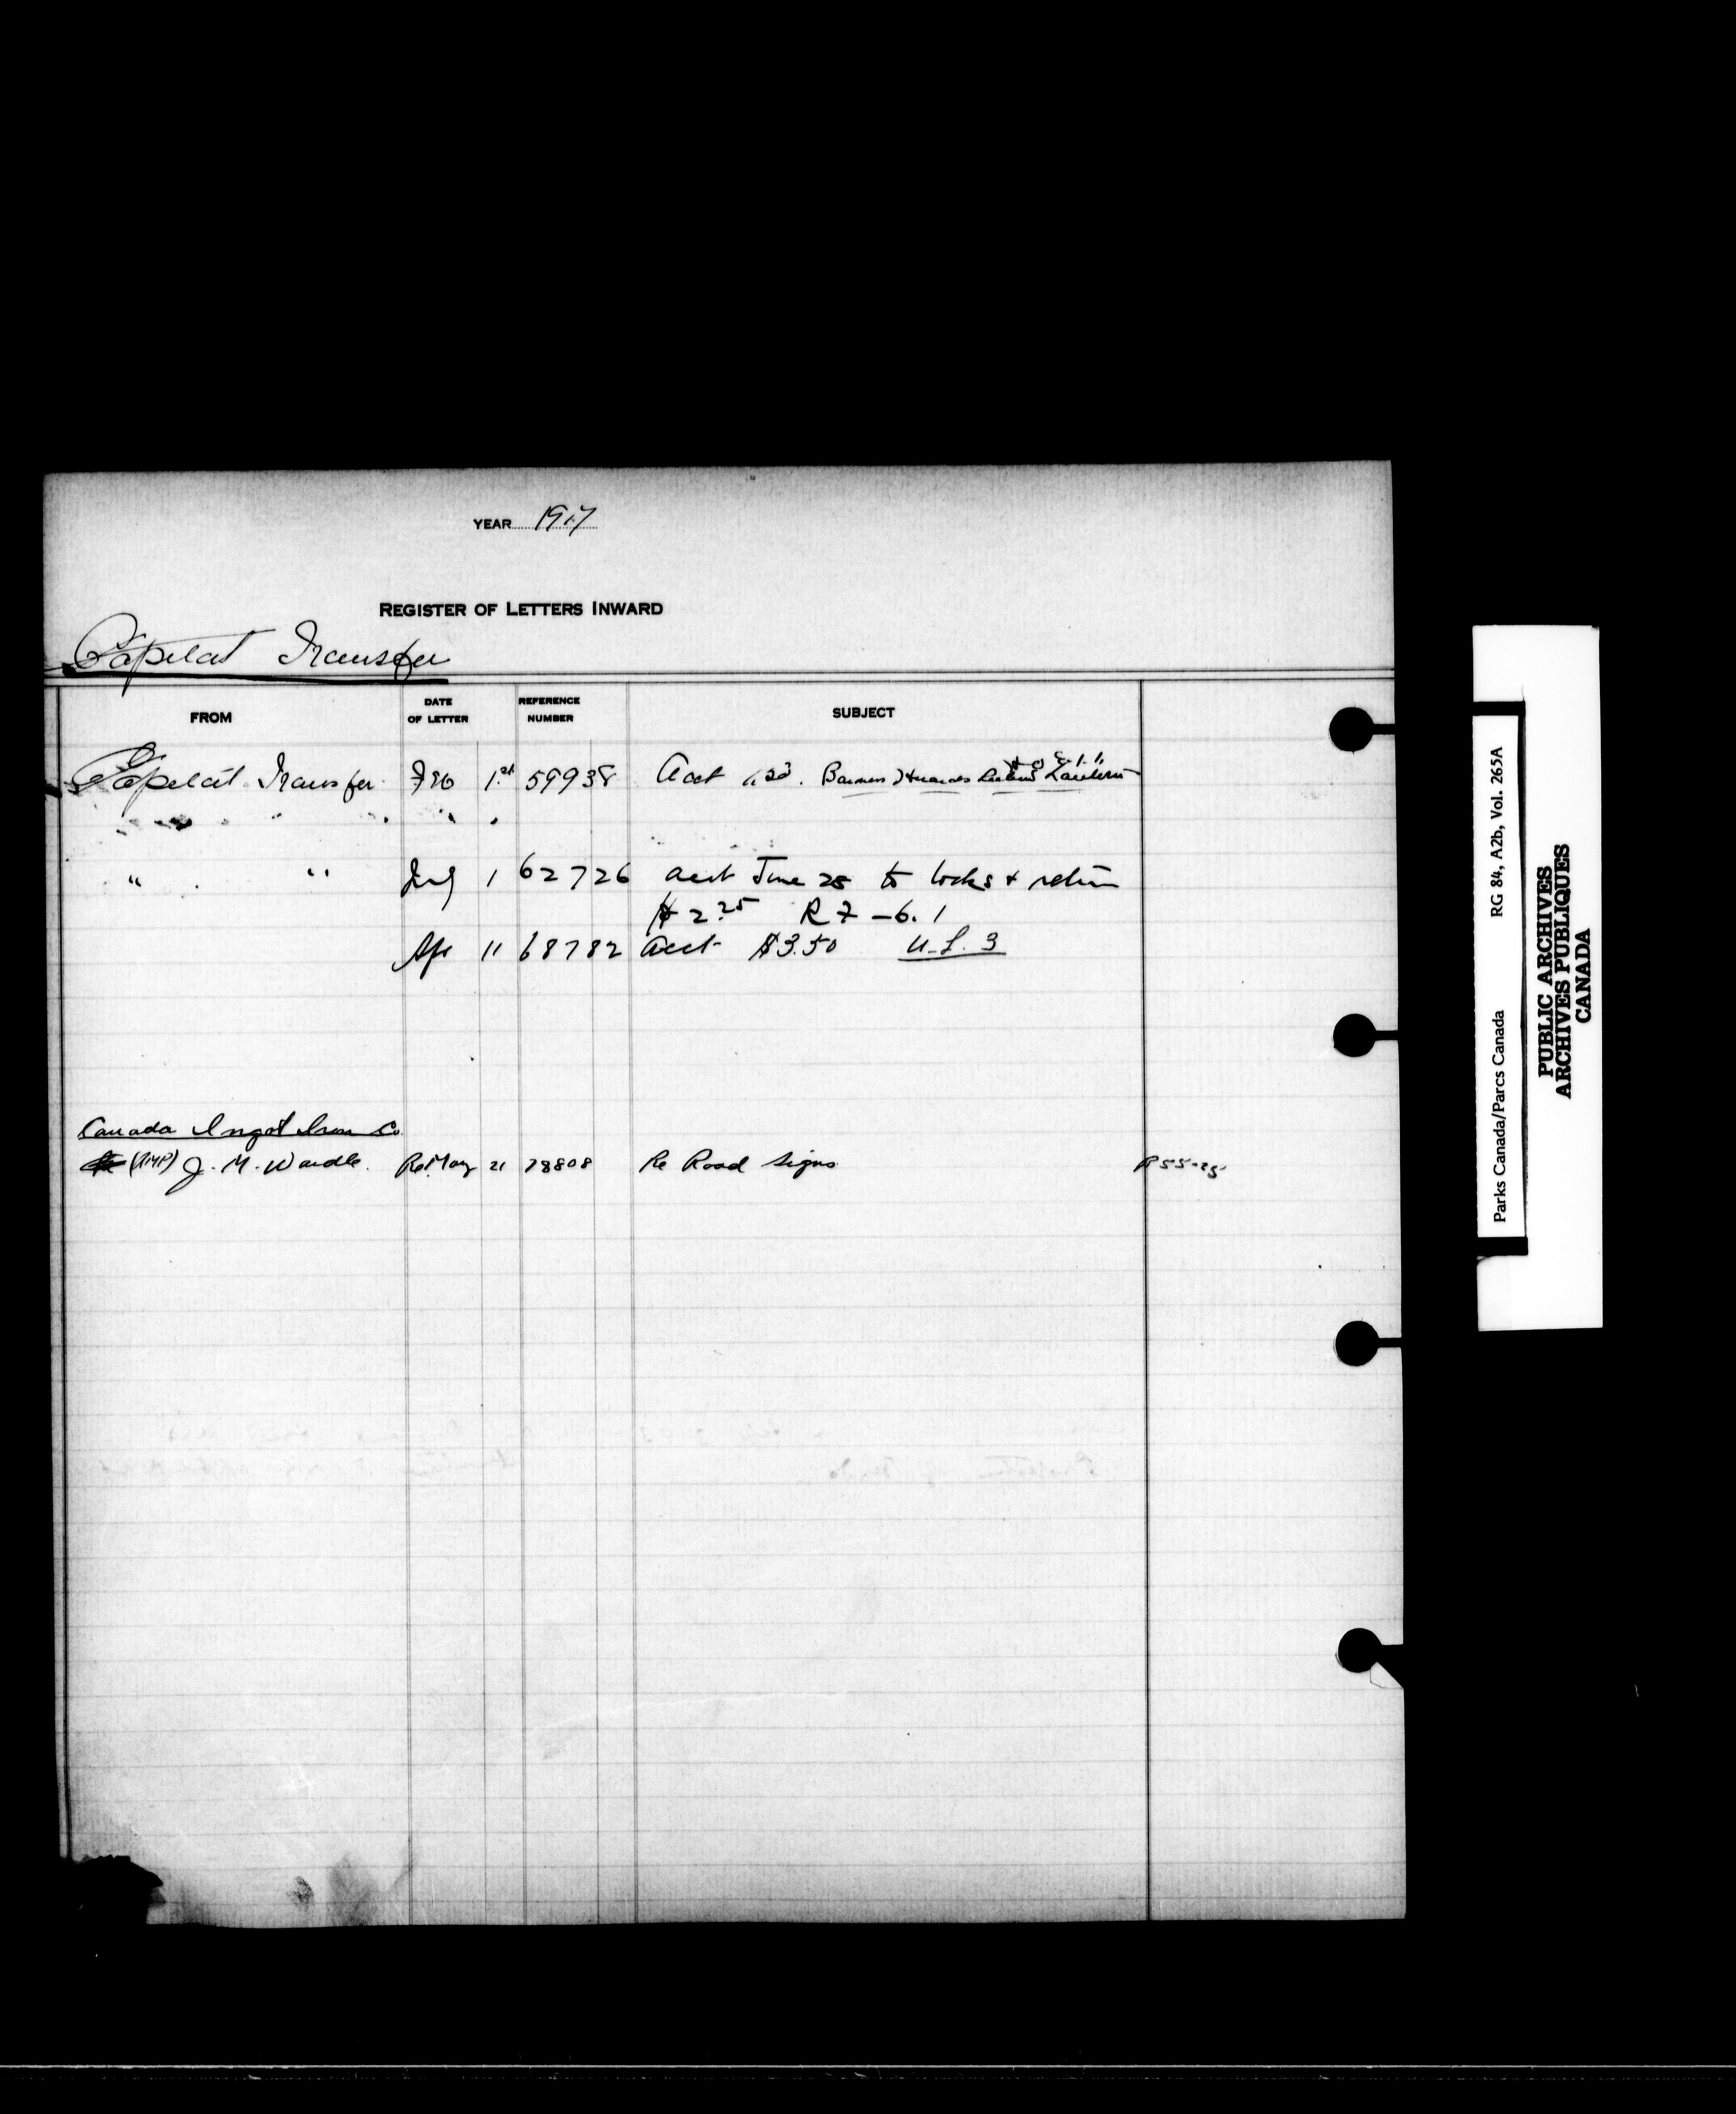 YEAR 1917
REGISTER OF LETTERS INWARD
Capital Transfer
FROM DATE OF LETTER REFERENCE NUMBER SUBJECT
Capital Transfer 1st 59938 Acct
" " July 1 62726 acct June 25 to locks & return
$2.25 R7-6.1
Apr 11 68782 Acct $3.50 U.L. 3
Canada Ingot Iron Co.
(RMP) J. M. Wardle. May 21 78808 Re Road Signs R55-25
Parks Canada/Parcs Canada RG 84, A2b, Vol. 265A
PUBLIC ARCHIVES
ARCHIVES PUBLIQUES
CANADA